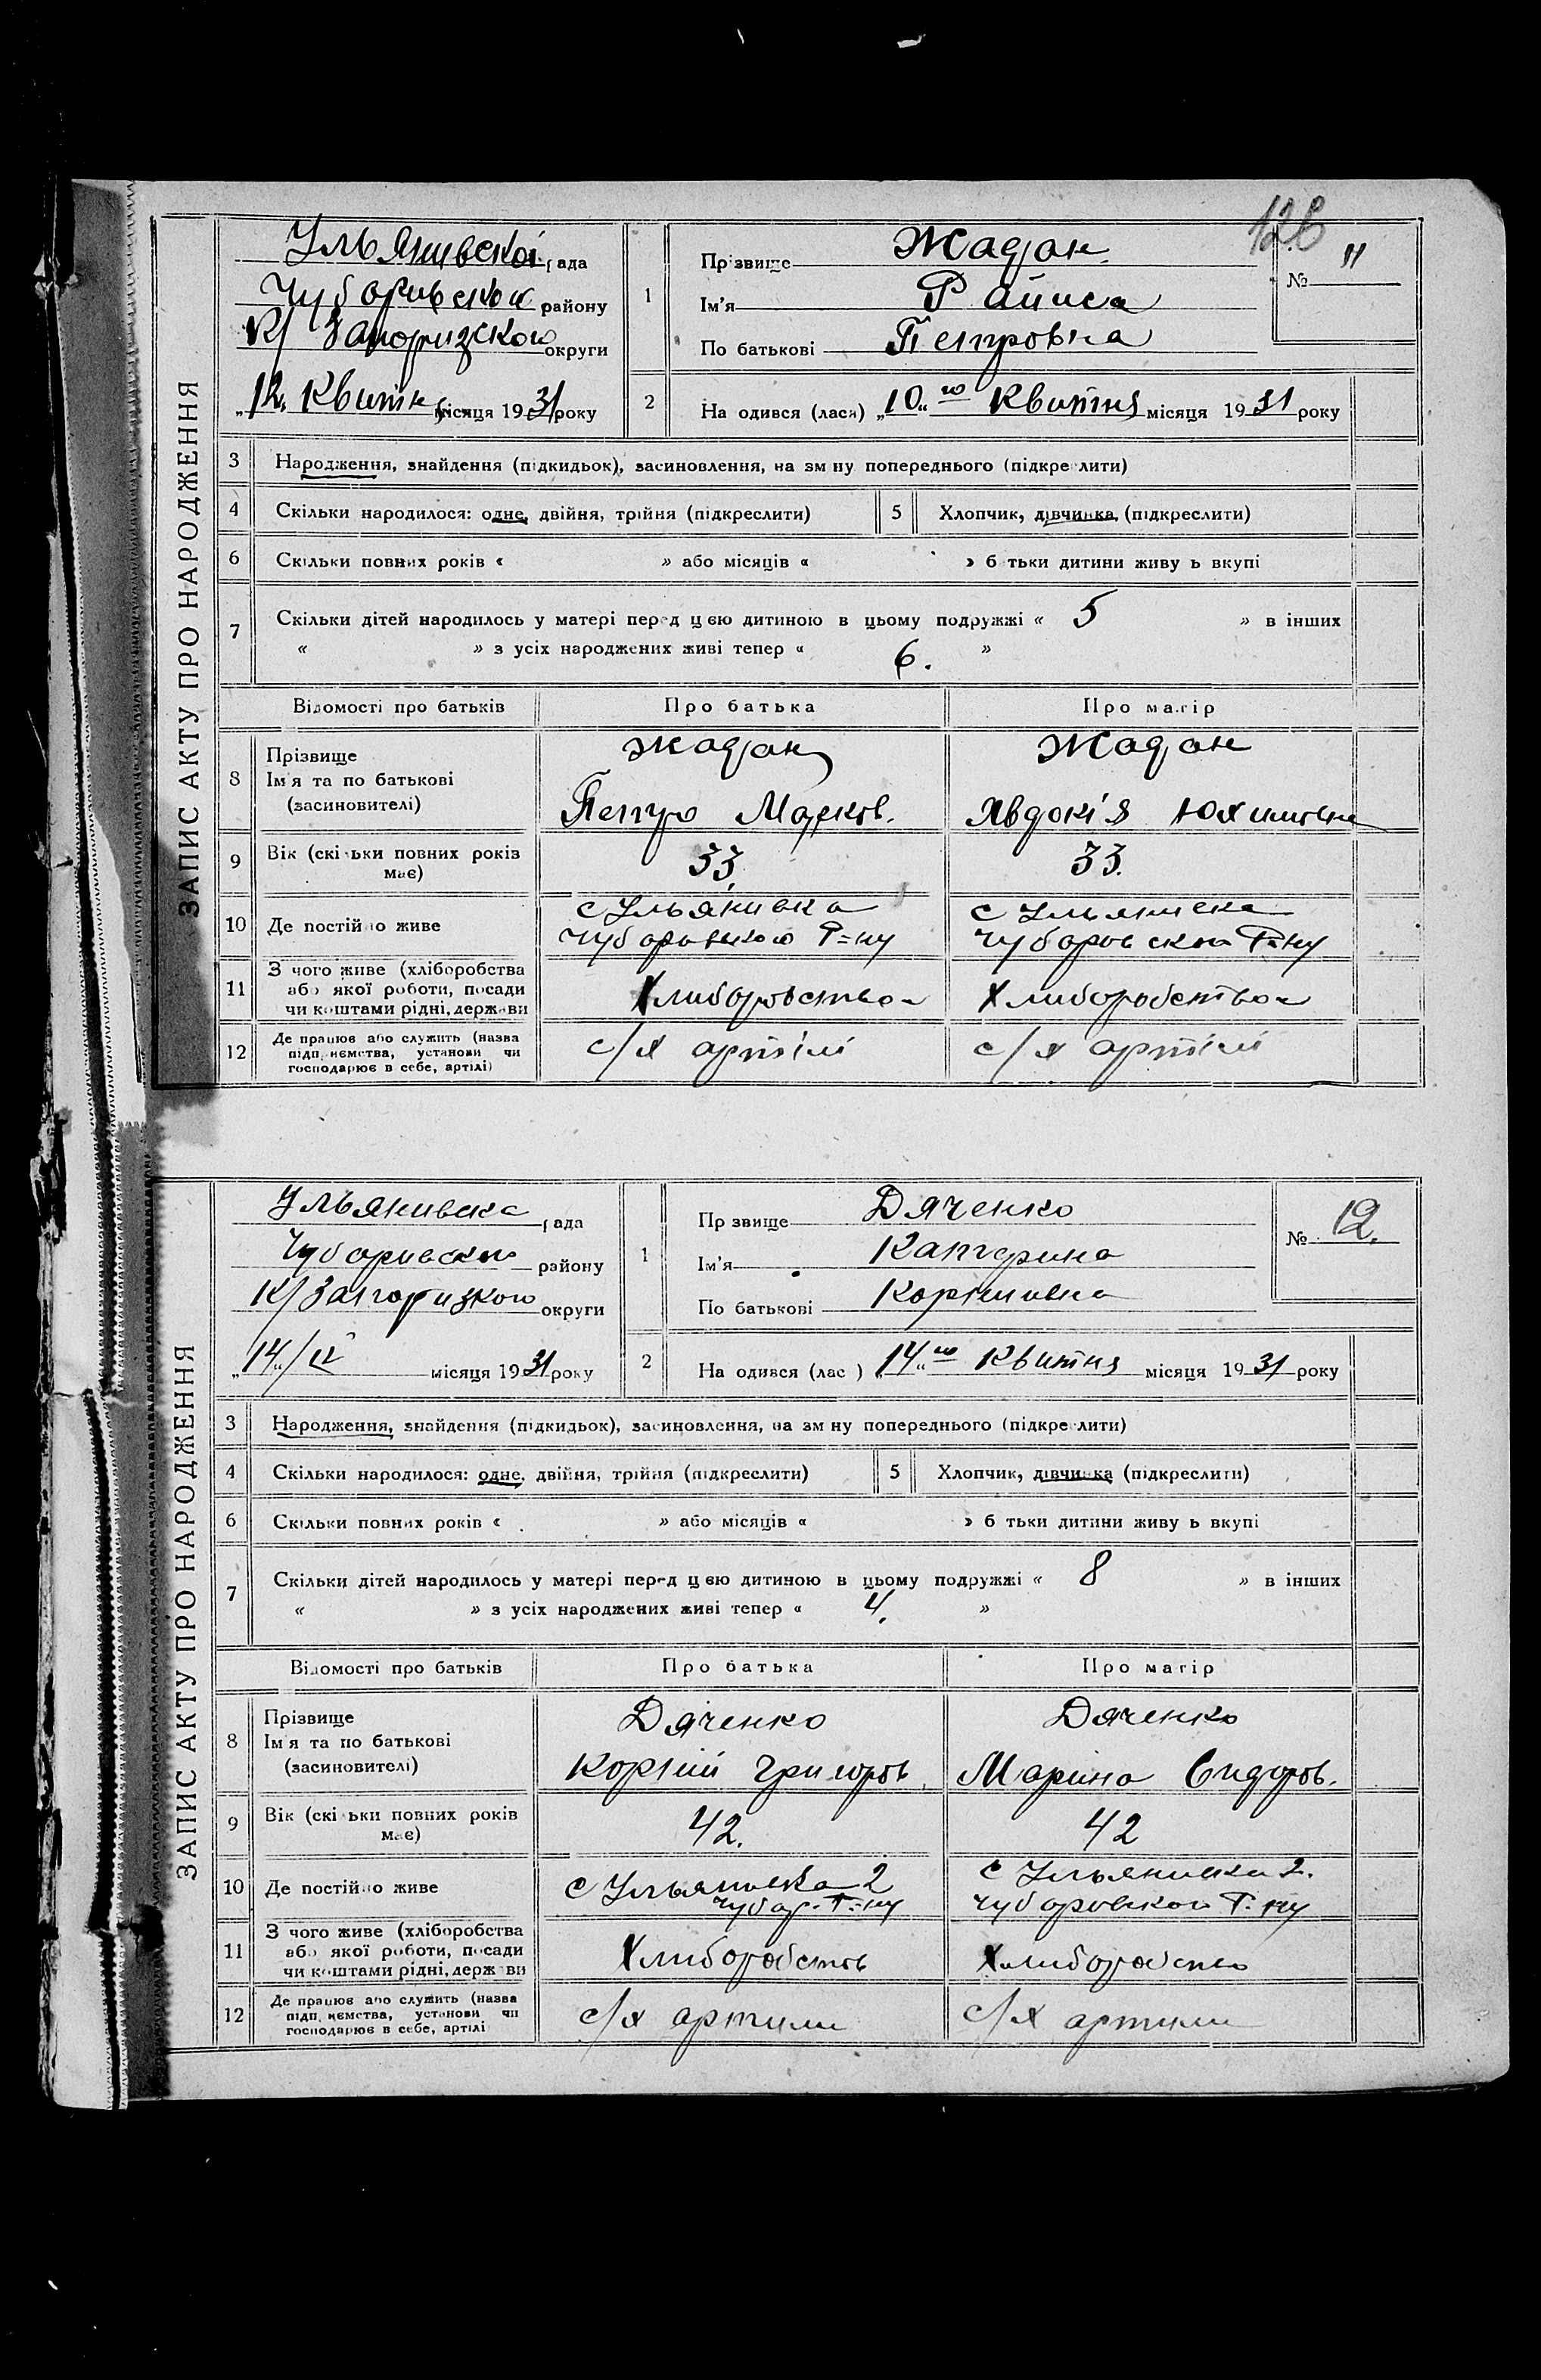 126
ЗАПИС АКТУ ПРО НАРОДЖЕННЯ
Ульянивскоі рада
Чубаривского району
К/Запоризского округи
„12„ Квитня місяця 1931 року
1
Прізвище Жадан
Ім'я Раиса
По батькові Петровна
№ 11
2
На одився (лася) „10„го Квитня місяця 1931 року
3 Народження, знайдення (підкидьок), засиновлення, на зм ну попереднього (підкре лити)
4 Скільки народилося: одне, двійня, трійня (підкреслити) 5 Хлопчик, дівчинка (підкреслити)
6 Скільки повних років « » або місяців « » б тьки дитини живу ь вкупі
7 Скільки дітей народилось у матері перед цею дитиною в цьому подружжі « 5 » в інших
« » з усіх народжених живі тепер « 6. »
Відомості про батьків Про батька Про матір
8 Прізвище Жадан Жадан
Ім'я та по батькові
(засиновителі) Петро Марков. Явдокія Юхимовна
9 Вік (скі ьки повних років має) 33 33.
10 Де постійно живе с Ульянивка с Ульянивка
Чубаровского Р=ну Чубаровского Р=ну
11 З чого живе (хліборобства або якої роботи, посади чи коштами рідні, держави Хлиборобство Хлиборобство
12 Де працює або служить (назва підп иємства, установи чи господарює в себе, артілі) с/х артілі с/х артілі
ЗАПИС АКТУ ПРО НАРОДЖЕННЯ
Ульянивска рада
Чубаривского району
К/Запоризкого округи
„14„/IV місяця 1931 року
1
Пр звище Дяченко
Ім'я Катерина
По батькові Корніивна
№ 12.
2
На одився (лас ) „14„го Квитня місяця 1931 року
3 Народження, знайдення (підкидьок), засиновлення, на зм ну попереднього (підкре лити)
4 Скільки народилося: одне, двійня, трійня (підкреслити) 5 Хлопчик, дівчинка (підкреслити)
6 Скільки повних років « » або місяців « » б тьки дитини живу ь вкупі
7 Скільки дітей народилось у матері перед цею дитиною в цьому подружжі « 8 » в інших
« » з усіх народжених живі тепер « 4. »
Відомості про батьків Про батька Про матір
8 Прізвище Дяченко Дяченко
Ім'я та по батькові
(засиновителі) Корній Григоров. Марина Сидоров.
9 Вік (скі ьки повних років має) 42. 42
10 Де постійно живе с Ульяновка 2 с Ульянивки 2.
Чубар. Р=ну Чубаровского Р=ну
11 З чого живе (хліборобства або якої роботи, посади чи коштами рідні, держ ви Хлиборобств Хлиборобство
12 Де працює або служить (назва підп иємства, установи чи господарює в себе, артілі с/х артили с/х артили